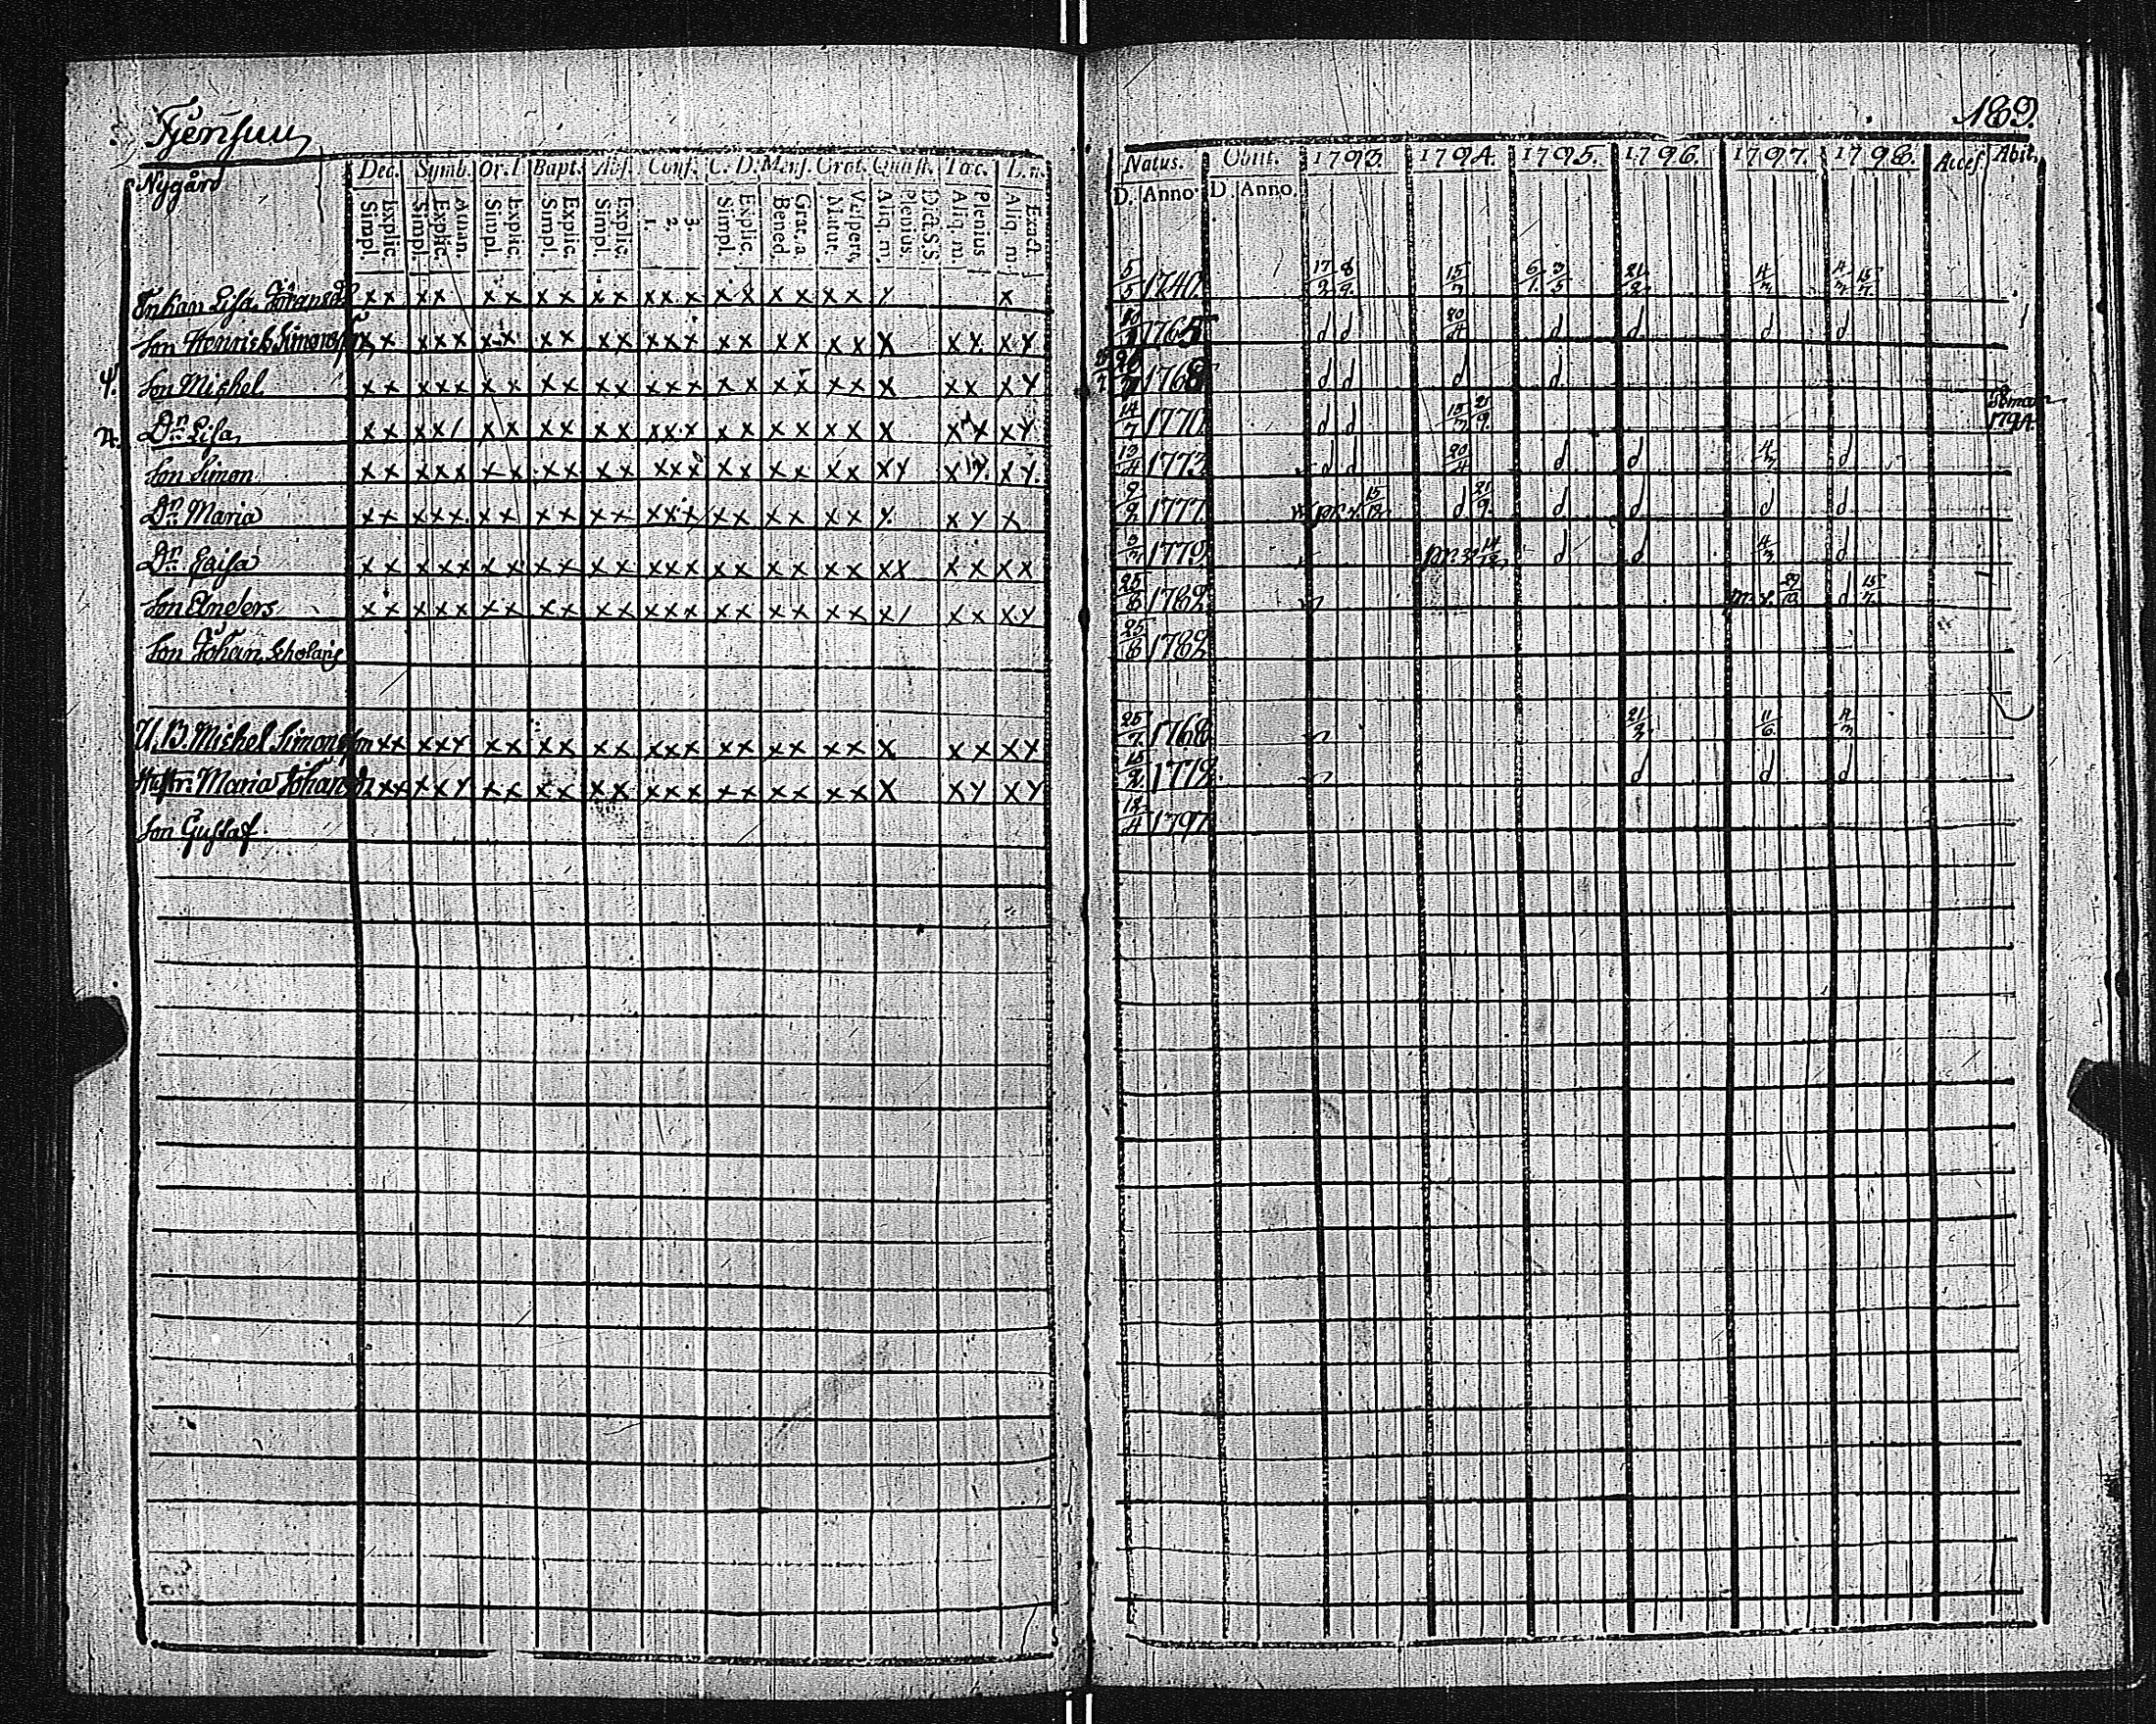 Tjensuu
189.
Nygård
Dec. Symb. Or. D. Bapt. Abs. Conf. C. D. Mens. Grat. Quæst. Tac. L. n.
Explic. Simpl. Athan. Explic. Simpl. Explic. Simpl. Explic. Simpl. Explic. Simpl. 3. 2. 1. Explic. Simpl. Grat. a. Bened. Vespert. Matut. Dict. S. S. Plenius. Aliq. m. Plenius Aliq. m. Exact Aliq. m.
Natus. Obiit. 1793. 1794. 1795. 1796. 1797. 1798. Access. Abit.
D. Anno D. Anno.
Enkan Lisa Göransdr x x x x x x x x x x x x x x x x x x x x x 5/5 1740. 17/2 8/9. 15/3 6/1. 3/5 21/2 4/3 4/3 15/7.
Son Henrich Simonsson x x x x x x x x x x x x x x x x x x x x x x x x x 1765 d d 20/4 d d d d
4. Son Michel x x x x x x x x x x x x x x x x x x x x x x x x x 1768 d d d d
n. Dr. Lisa x x x x / x x x x x x x x x x x x x x x x x x x x 14/7 1770 d d 15/3 21/9. 1794
Son Simon x x x x x x x x x x x x x x x x x x x x x x x x x x 13/4 1773 d d 20/4 d d 4/3 d
Dr. Maria x x x x x x x x x x x x x x x x x x x x x x x x 9/2 1777. 15/12 d 21/9. d d d d
Dr. Caisa x x x x x x x x x x x x x x x x x x x x x x x x x x 5/3 1779. 14/12 d d 4/3 d
Son Anders x x x x x x x x x x x x x x x x x x x x x / x x x x 25/6 1782 29/10 d 15/7.
Son Johan Scholaris 25/6 1782
U. B. Michel Simonsson x x x x x x x x x x x x x x x x x x x x x x x x x 25/7. 1768 21/3 11/6. 4/3
Hustr: Maria Johansdr x x x x x x x x x x x x x x x x x x x x x x x x x 15/2. 1772. d d d
Son Gustaf 12/4 1797